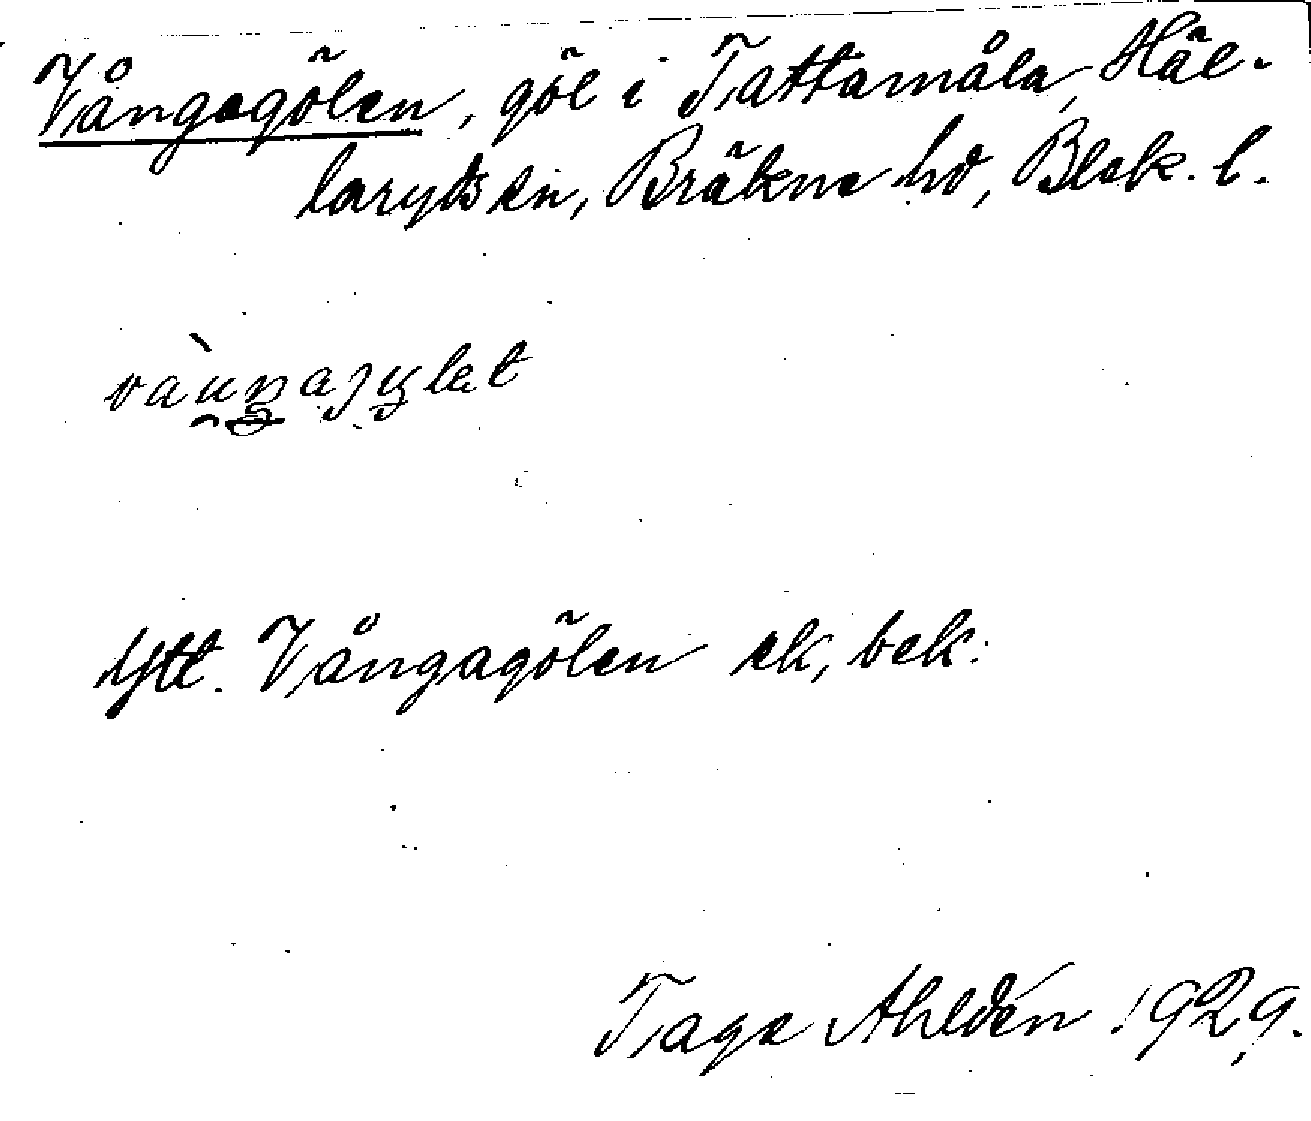 Vångagölen, göl i Tattamåla, Häl-
laryds sn, Bräkne hd, Blek. l.
Ytt. Vångagölen ek, bek.
Tage Ahldén 1929.